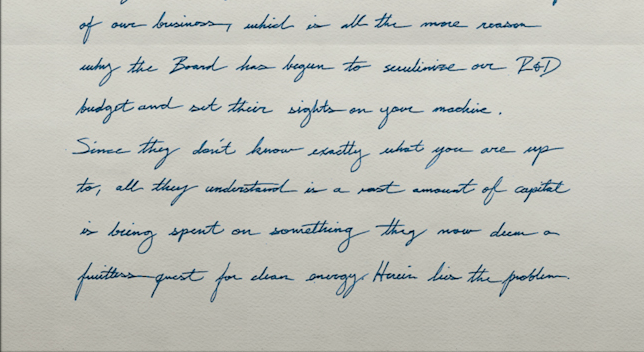 of our business, which is all the more reason
why the Board has begun to scrutinize our R&D
budget and set their sights on your machine.
Since they don't know exactly what you are up
to, all they understand is a vast amount of capital
is being spent on something they now deem a
fruitless quest for clean energy. Herein lies the problem.